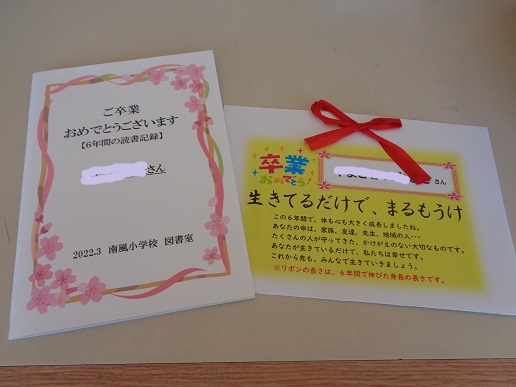 ご卒業
おめでとうございます
【6年間の読書記録】
さん
2022.3 南風小学校 図書室
卒業
おめでとう！
さん
生きてるだけで、まるもうけ
この６年間で、体も心も大きく成長しましたね。
あなたの命は、家族、友達、先生、地域の人・・・
たくさんの人が守ってきた、かけがえのない大切なものです。
あなたが生きているだけで、私たちは幸せです。
これから先も、みんなで生きていきましょう。
※リボンの長さは、６年間で伸びた身長の長さです。